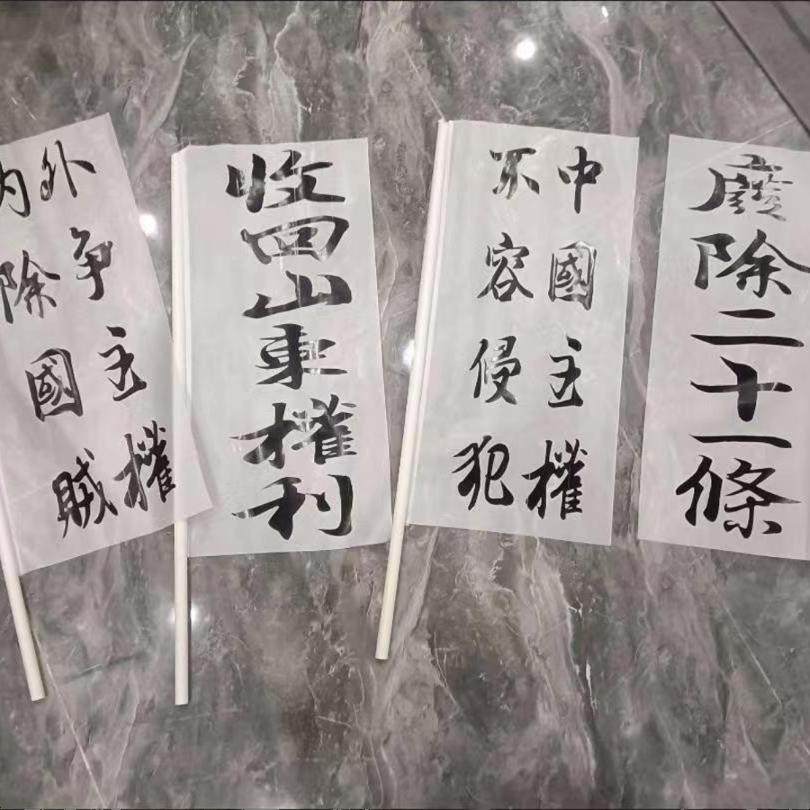 外争主權
内除國賊
收回山東權利
中國主權
不容侵犯
廢除二十一條